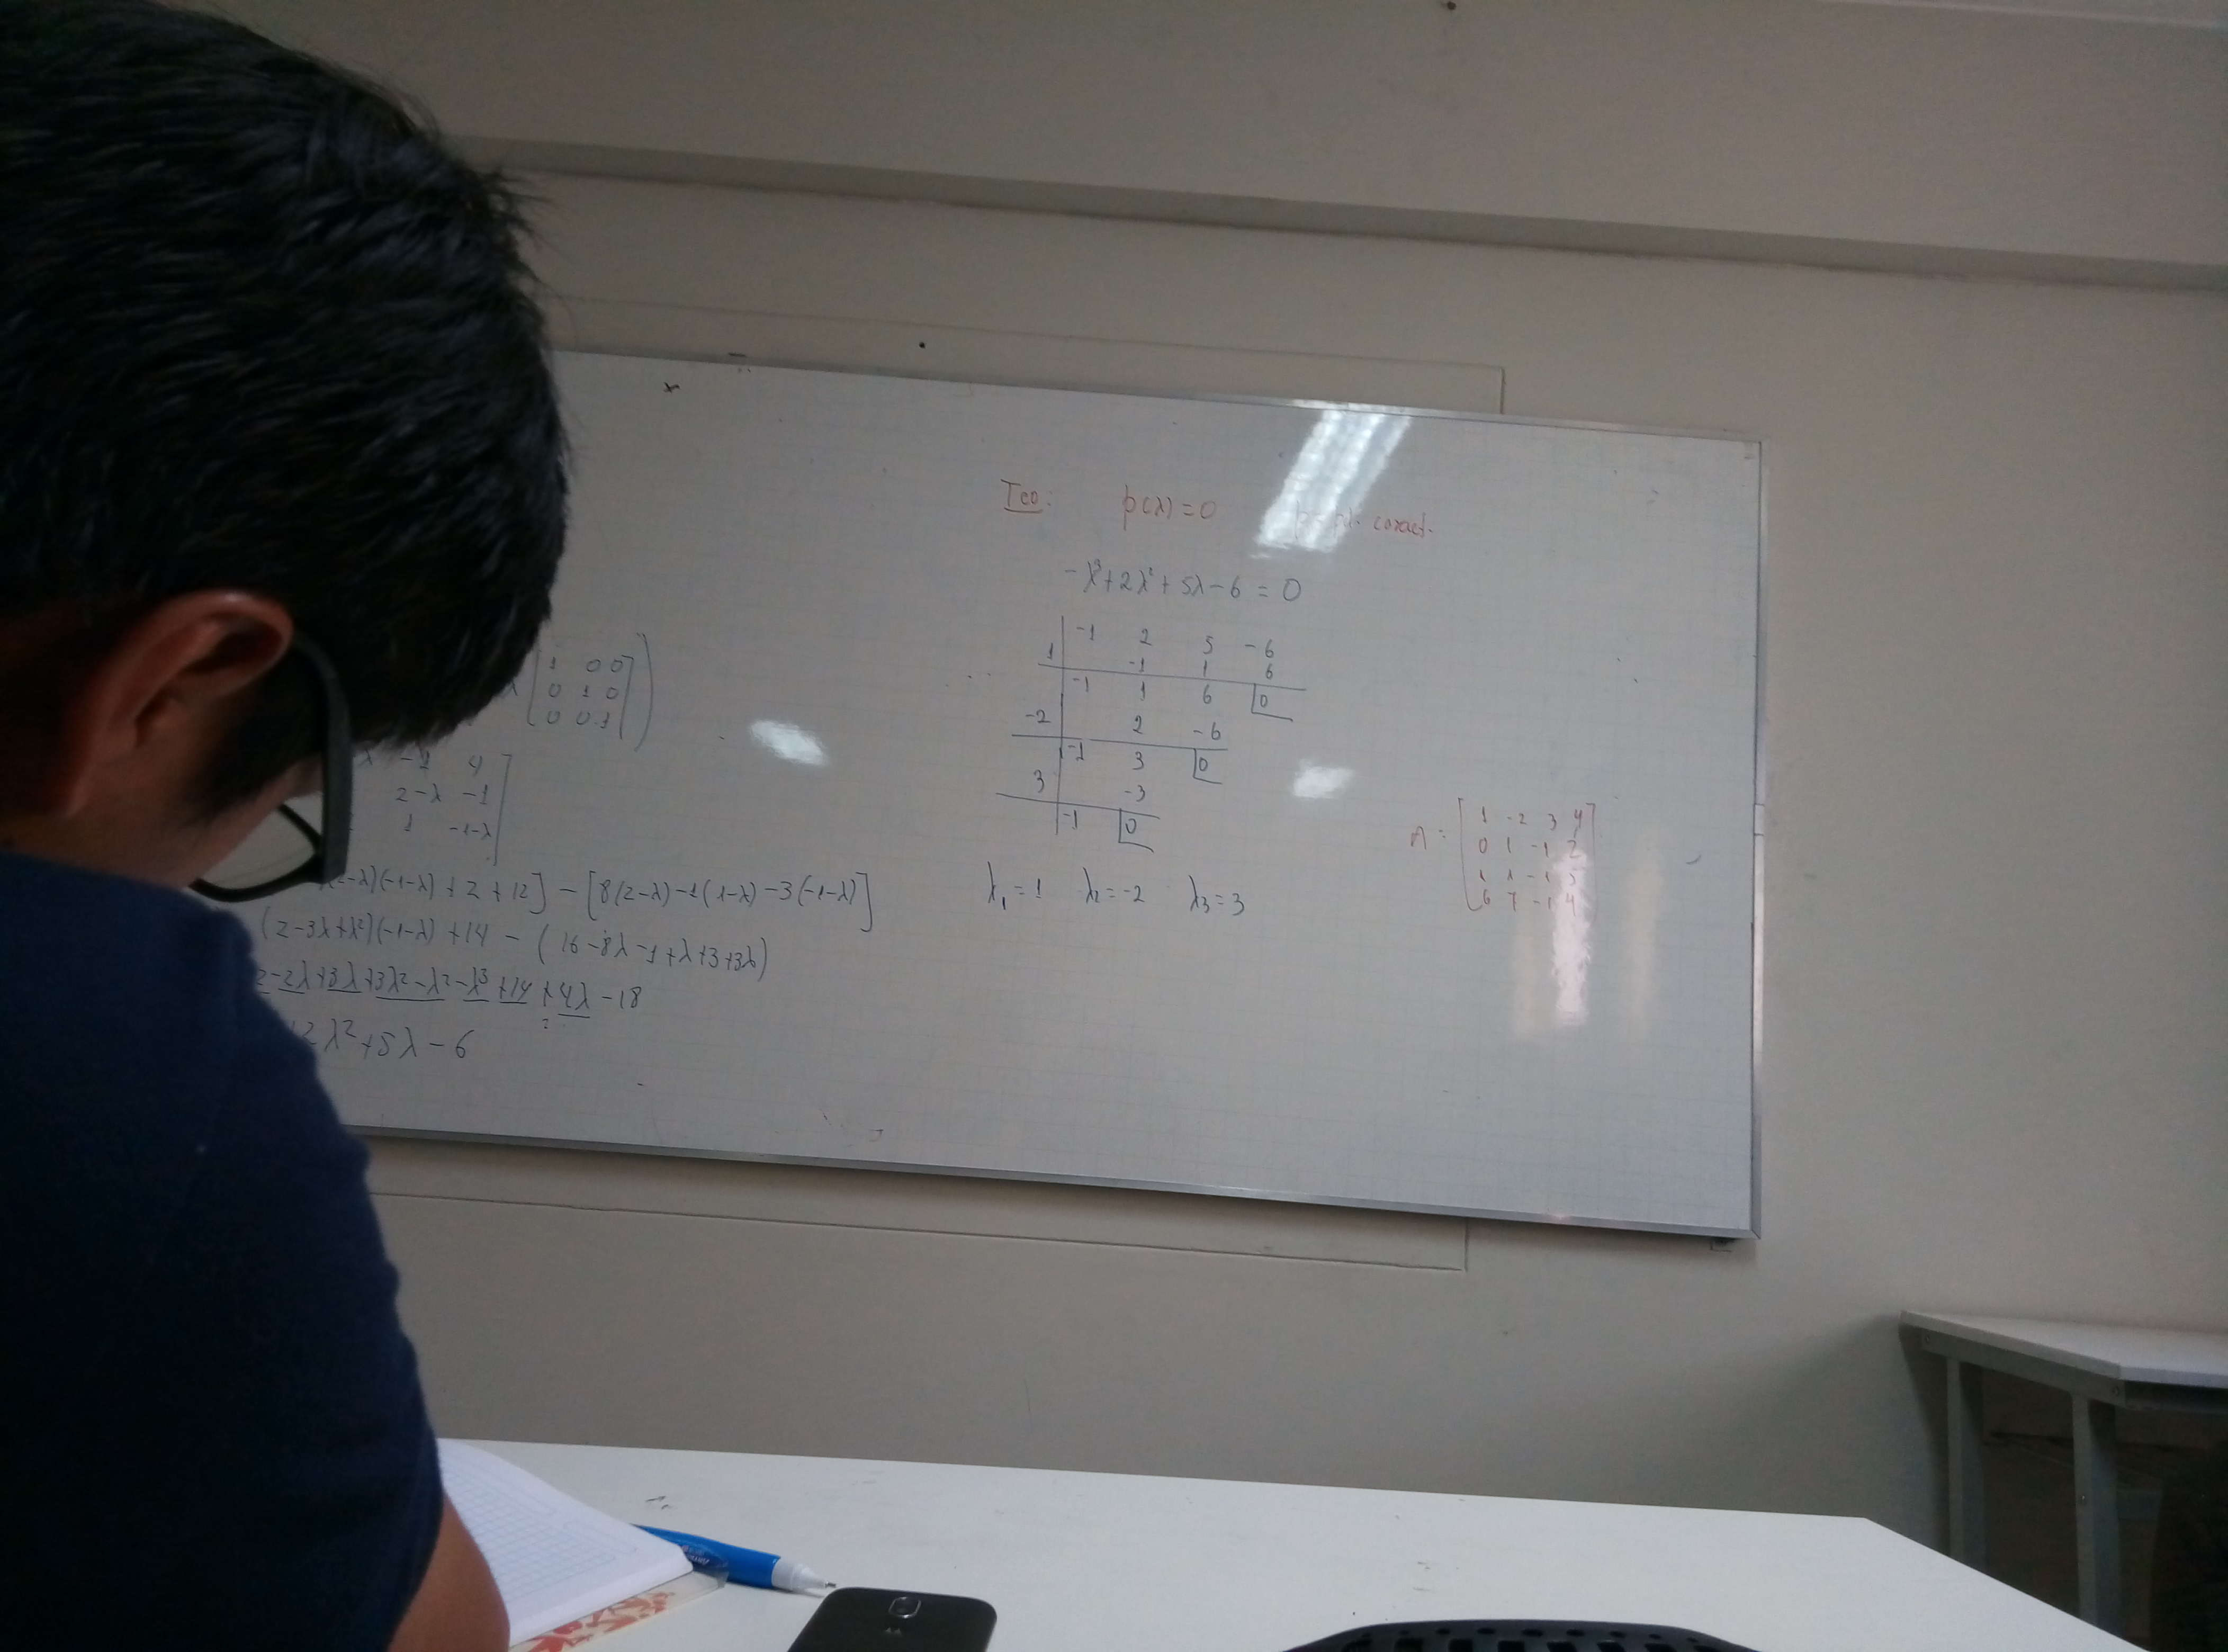 1 0 0
0 1 0
0 0 1
λ -1 4
2-λ -1
1 -1-λ
-λ)(-1-λ) + 2 + 12] - [8(2-λ) -1(1-λ) -3(-1-λ)]
(2-3λ+λ²)(-1-λ) +14 - (16-8λ-1+λ+3+3λ)
-2λ+3λ+3λ²-λ²-λ³+14+4λ-18
2λ²+5λ-6
Teo: p(λ)=0 caract.
-λ³+2λ²+5λ-6=0
-1 2 5 -6
1 -1 1 6
-1 1 6 0
-2 2 -6
-1 3 0
3 -3
-1 0
λ₁=1 λ₂=-2 λ₃=3
A = 1 -2 3 4
0 1 -1 2
1 1 -1 5
6 7 -1 4